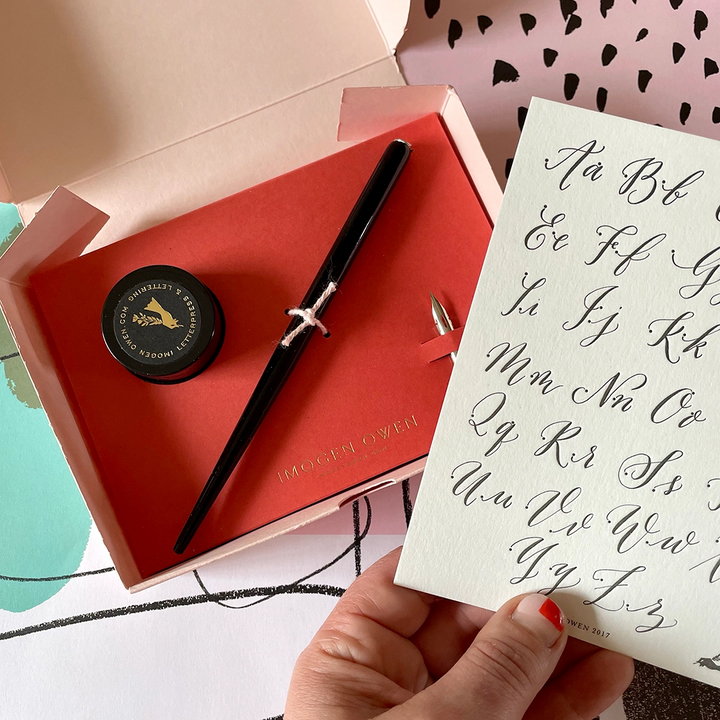 IMOGEN OWEN.COM LETTERPRESS & LETTERING
IMOGEN OWEN
Aa Bb
Ee Ff Gg
Ii Jj Kk
Mm Nn Oo
Qq Rr Ss
Uu Vv Ww
Yy Zz
OWEN 2017